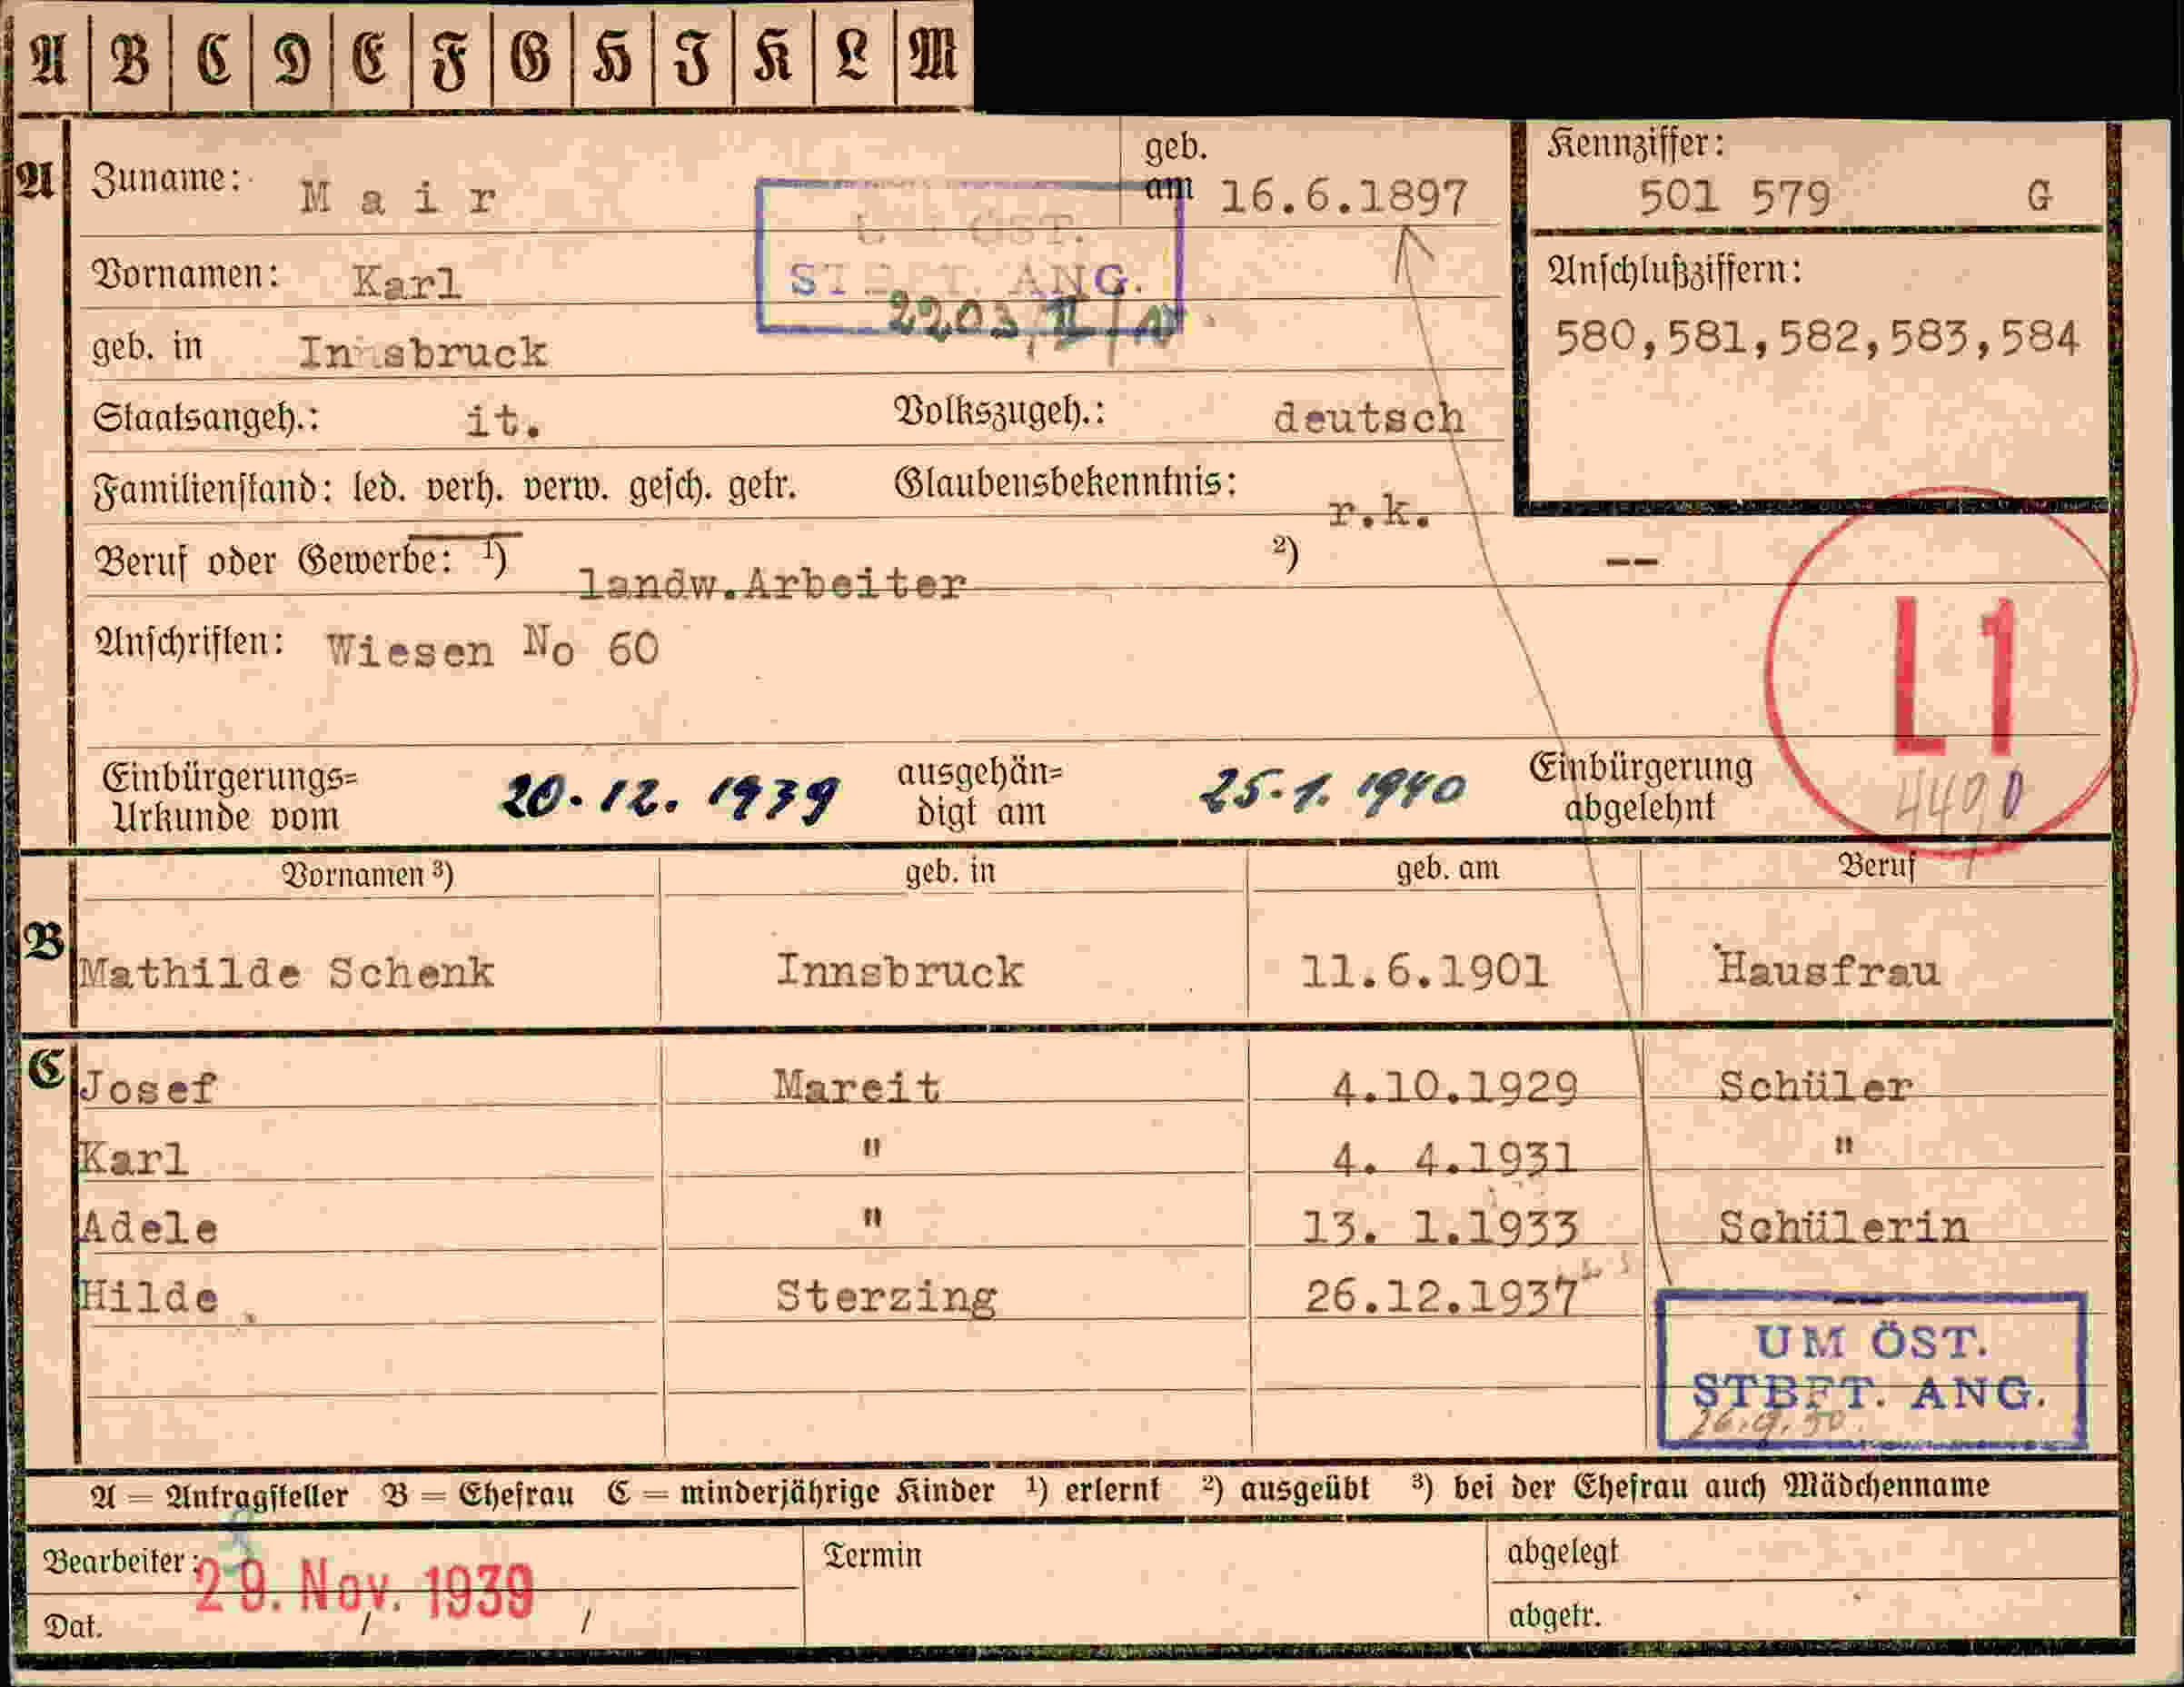 A B C D E F G H I K L M
A Zuname: Mair geb. am 16.6.1897 Kennziffer: 501 579 G
ÖST.
Vornamen: Karl ST ANG. Anschlußziffern:
2203
geb. in Innsbruck 580,581,582,583,584
Staatsangeh.: it. Volkszugeh.: deutsch
Familienstand: led. verh. verw. gesch. getr. Glaubensbekenntnis: r.k.
Beruf oder Gewerbe: 1) landw.Arbeiter 2) --
Anschriften: Wiesen No 60
L1
Einbürgerungs= Urkunde vom 20.12.1939 ausgehän= digt am 25.1.1940 Einbürgerung abgelehnt
Vornamen 3) geb. in geb. am Beruf
B Mathilde Schenk Innsbruck 11.6.1901 Hausfrau
C Josef Mareit 4.10.1929 Schüler
Karl " 4. 4.1931 "
Adele " 13. 1.1933 Schülerin
Hilde Sterzing 26.12.1937
UM ÖST.
STBFT. ANG.
26.9.50.
A = Antragsteller B = Ehefrau C = minderjährige Kinder 1) erlernt 2) ausgeübt 3) bei der Ehefrau auch Mädchenname
Bearbeiter: Termin abgelegt
29. Nov. 1939
Dat. / / abgetr.